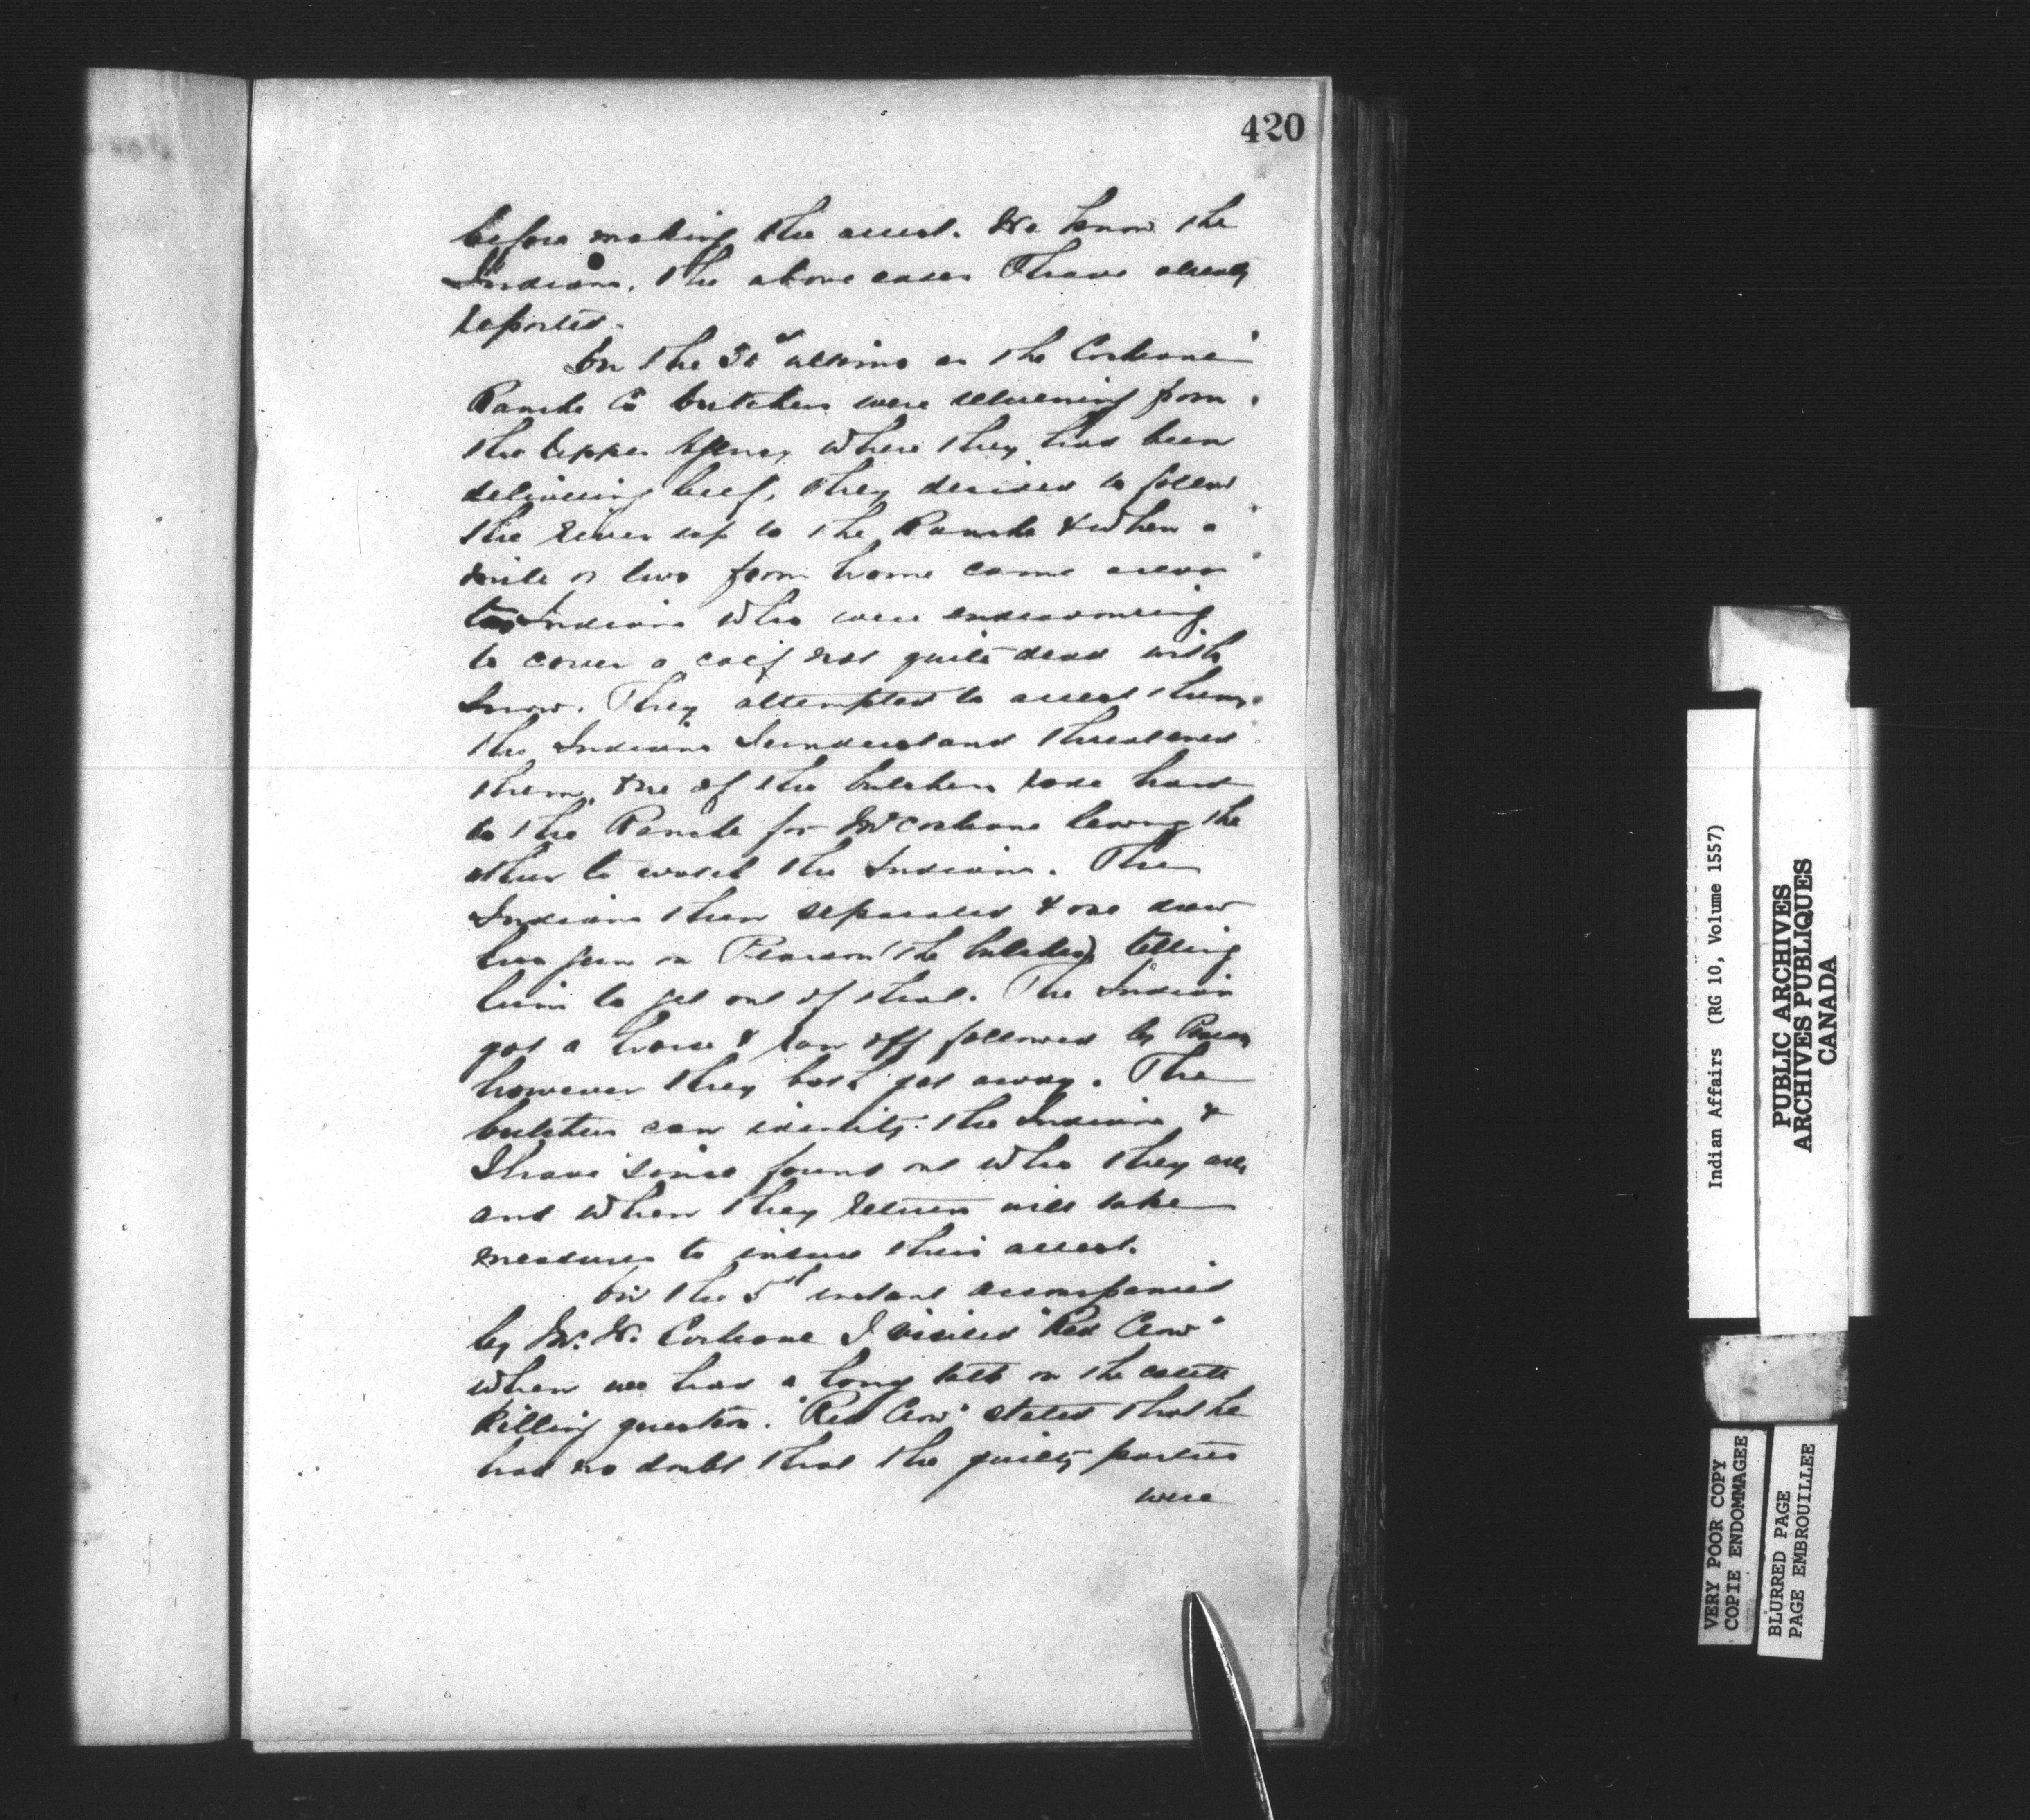 420
before making the arrest. We know the
Indians, the above cases I have already
reported.
On the 31st ultimo as the Cochrane
Ranche Co butchers were returning from
the Upper Agency where they had been
delivering beef, they decided to follow
the river up to the Ranche & when a
mile or two from home came across
two Indians who were endeavouring
to cover a calf not quite dead with
snow. They attempted to arrest them,
the Indians I understand threatened
them, one of the butchers rode hard
to the Ranche for Mr Cochrane leaving the
other to watch the Indians. The
Indians then separated & one drew
his gun on Pearson (the butcher) telling
him to get out of that. The Indian
got a horse & ran off followed by
however they both got away. The
butchers can identify the Indians &
I have since found out who they are,
and when they return will take
measures to insure their arrest.
On the 5th instant accompanied
by Mr. W. Cochrane I visited "Red Crow"
when we had a long talk on the cattle
killing question. "Red Crow" stated that he
had no doubt that the guilty parties
were
Indian Affairs (RG 10, Volume 1557)
PUBLIC ARCHIVES
ARCHIVES PUBLIQUES
CANADA
VERY POOR COPY
COPIE ENDOMMAGEE
BLURRED PAGE
PAGE EMBROUILLEE